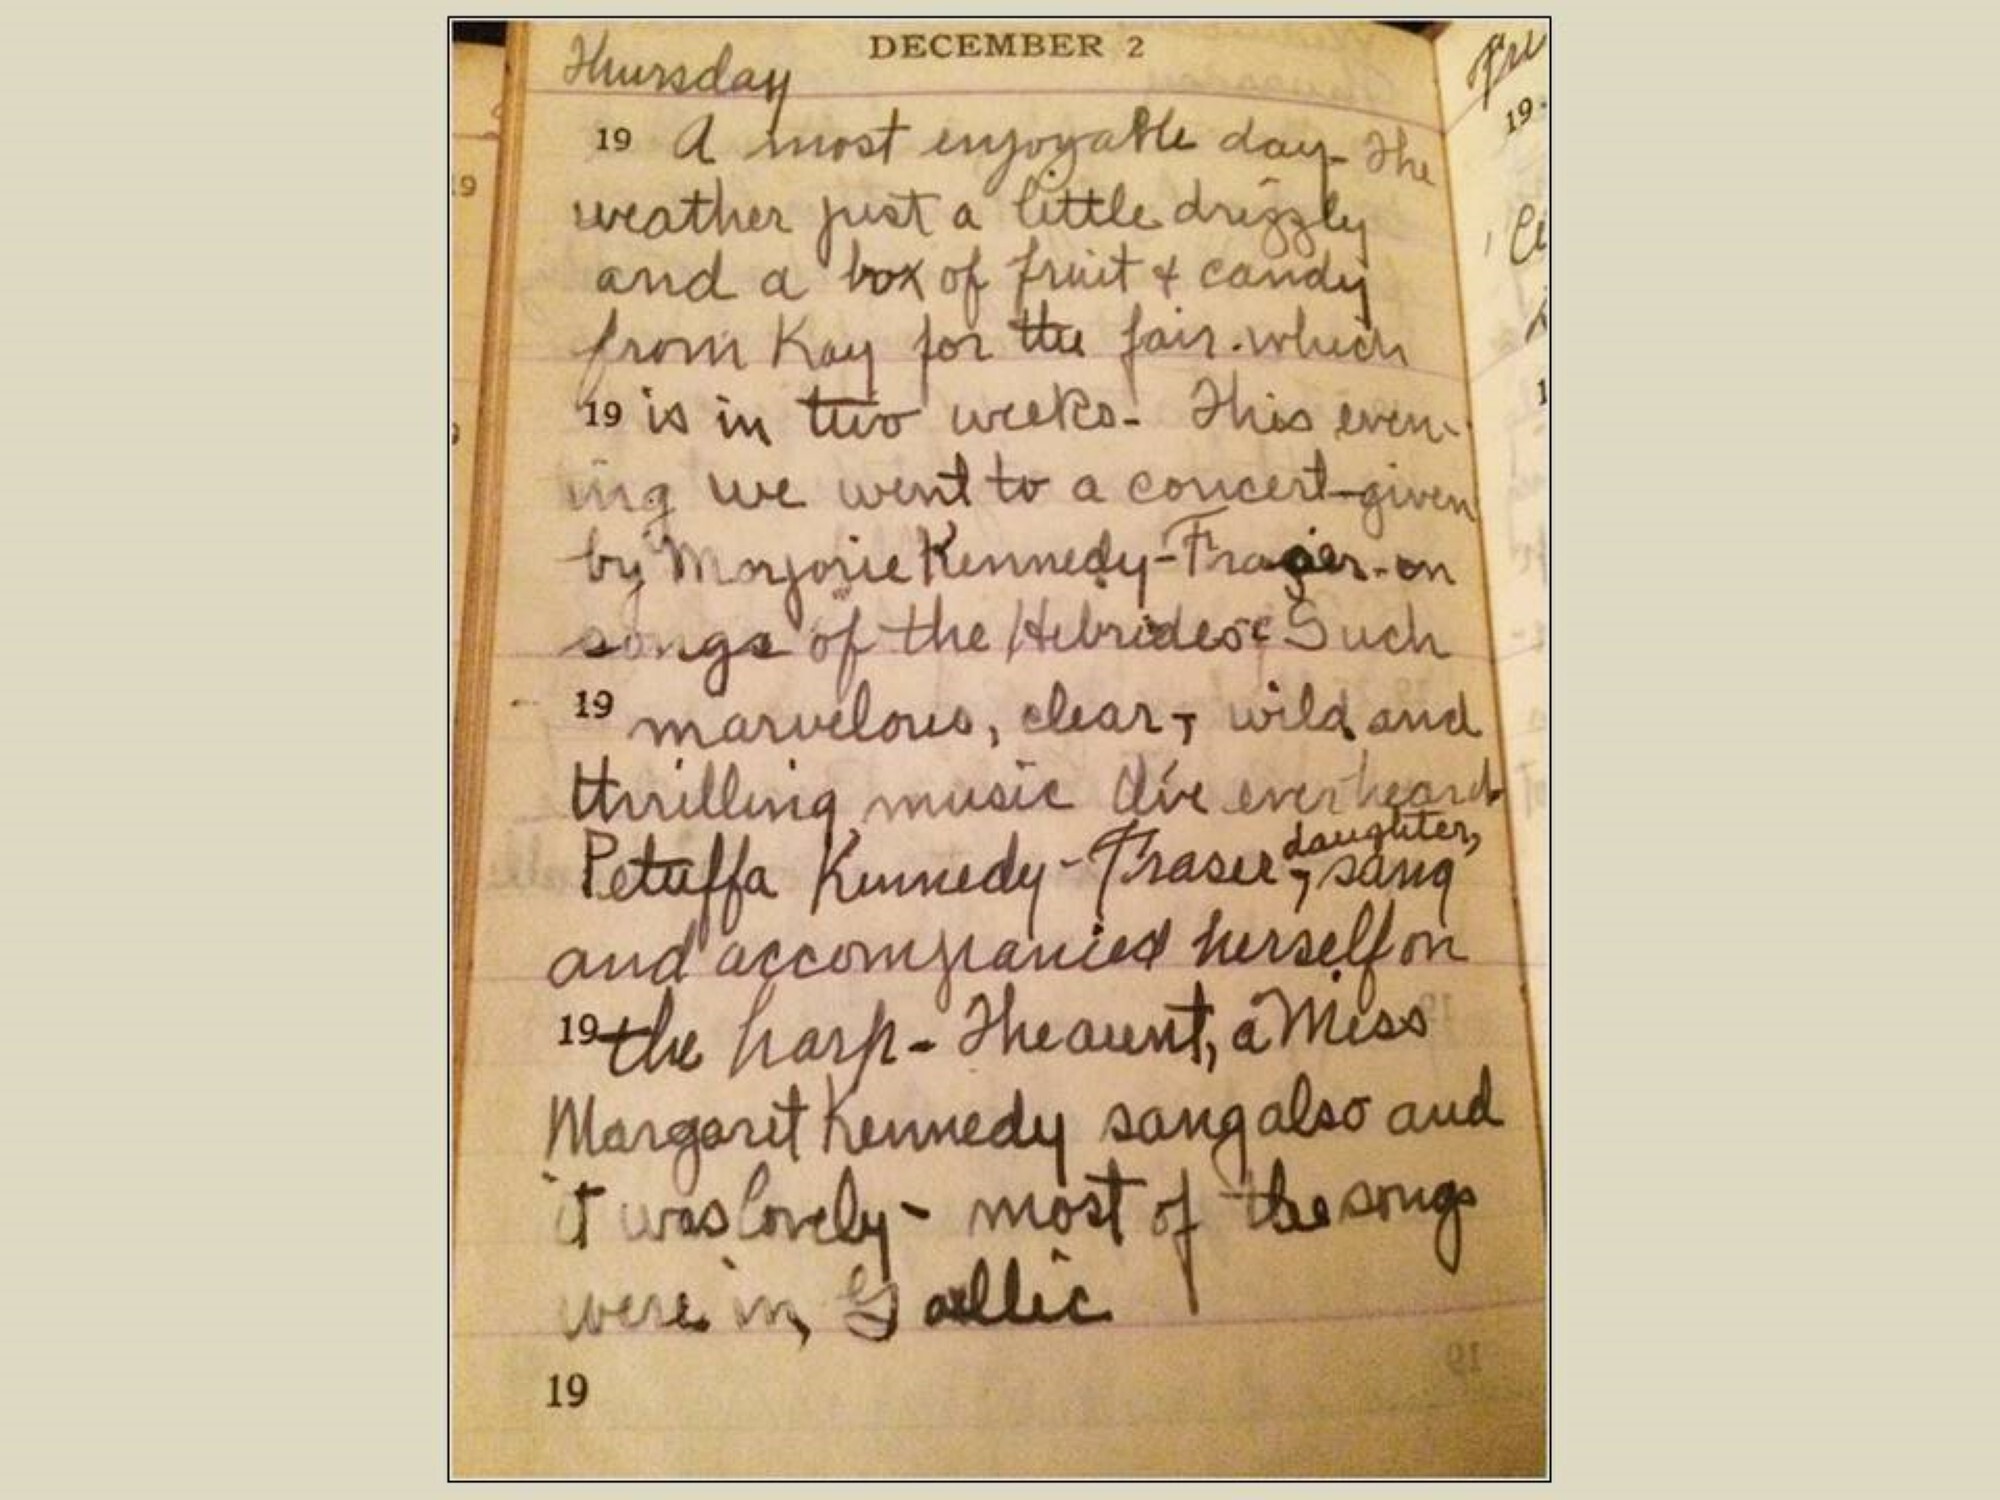 DECEMBER 2
Thursday
19 A most enjoyable day- The
weather just a little drizzly
and a box of fruit & candy
from Kay for the fair. which
19 is in two weeks- This even-
ing we went to a concert-given
by Marjorie Kennedy-Fraser-on
songs of the Hebrides Such
19 marvelous, clear, wild and
thrilling music I've ever heard.
daughter,
Petuffa Kennedy-Fraser, sang
and accompanied herself on
19 the harp- The aunt, a Miss
Margaret Kennedy sang also and
it was lovely- most of the songs
were in Gallic
19
19
19